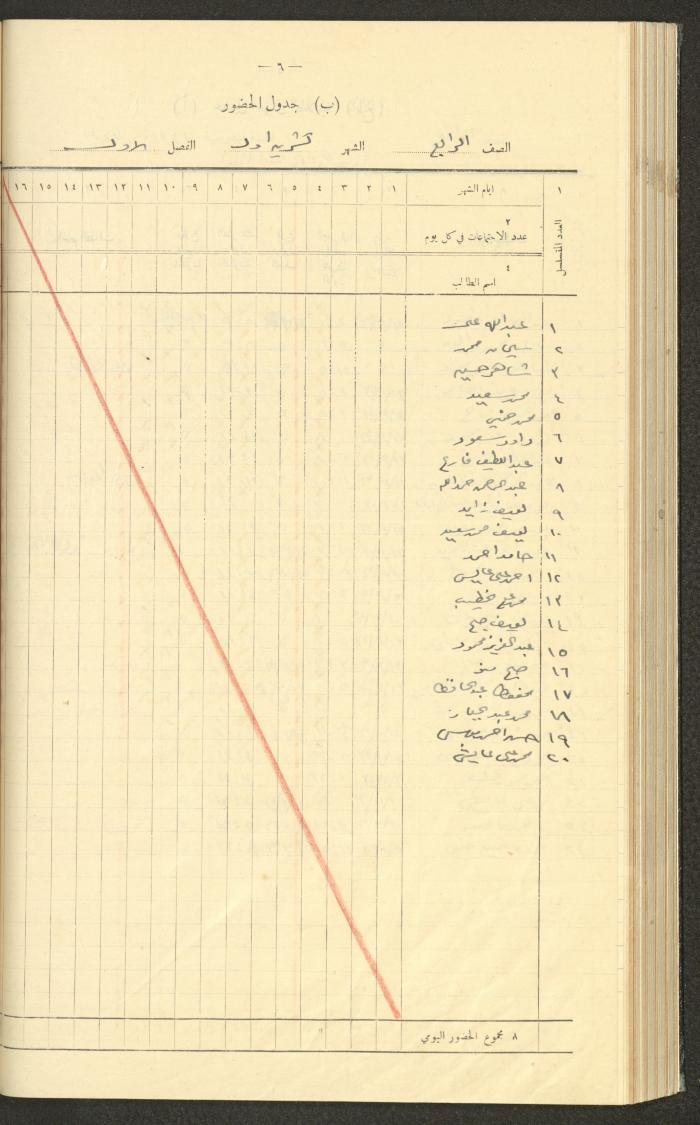 — ٦ —
(ب) جدول الحضور
الصف الرابع الشهر تشرين اول الفصل الاول
١ ايام الشهر ١ ٢ ٣ ٤ ٥ ٦ ٧ ٨ ٩ ١٠ ١١ ١٢ ١٣ ١٤ ١٥ ١٦
العدد المتسلسل
٢
عدد الاجتماعات في كل يوم
٤
اسم الطالب
١ عبدالله علي
٢ محمد
٣ شاهر حسين
٤ محمد سعيد
٥ محمد حفني
٦ داود سعود
٧ عبد اللطيف فارع
٨ عبد الرحمن حمدالله
٩ زايد
١٠ محمد سعيد
١١ حامد احمد
١٢ احمد علي عايش
١٣ محمد خطيب
١٤
١٥ عبد العزيز محمود
١٦
١٧ محفوظ عبد الحافظ
١٨ محمد عبد الجبار
١٩ حسن احمد
٢٠ محمد علي عايش
٨ مجموع الحضور اليومي